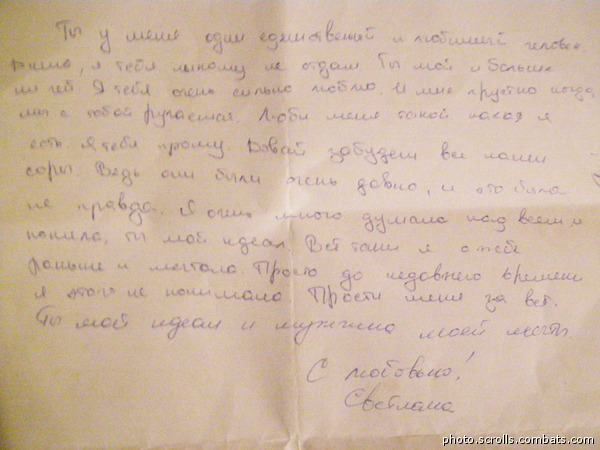 Ты у меня один единственный и любимый человек.
Дима, я тебя никому не отдам Ты мой и больше
ни чей Я тебя очень сильно люблю. И мне грустно когда
мы с тобой ругаемся. Люби меня такой какая я
есть. Я тебя прошу. Давай забудем все наши
соры. Ведь они были очень давно, и это была
не правда. Я очень много думала над всем и
поняла, ты мой идеал. Всё таки я о тебе
раньше и мечтала. Просто до недавнего времени
я этого не понимала. Прости меня за всё.
Ты мой идеал и мужчина моей мечты.
С любовью!
Светлана
photo.scrolls.combats.com